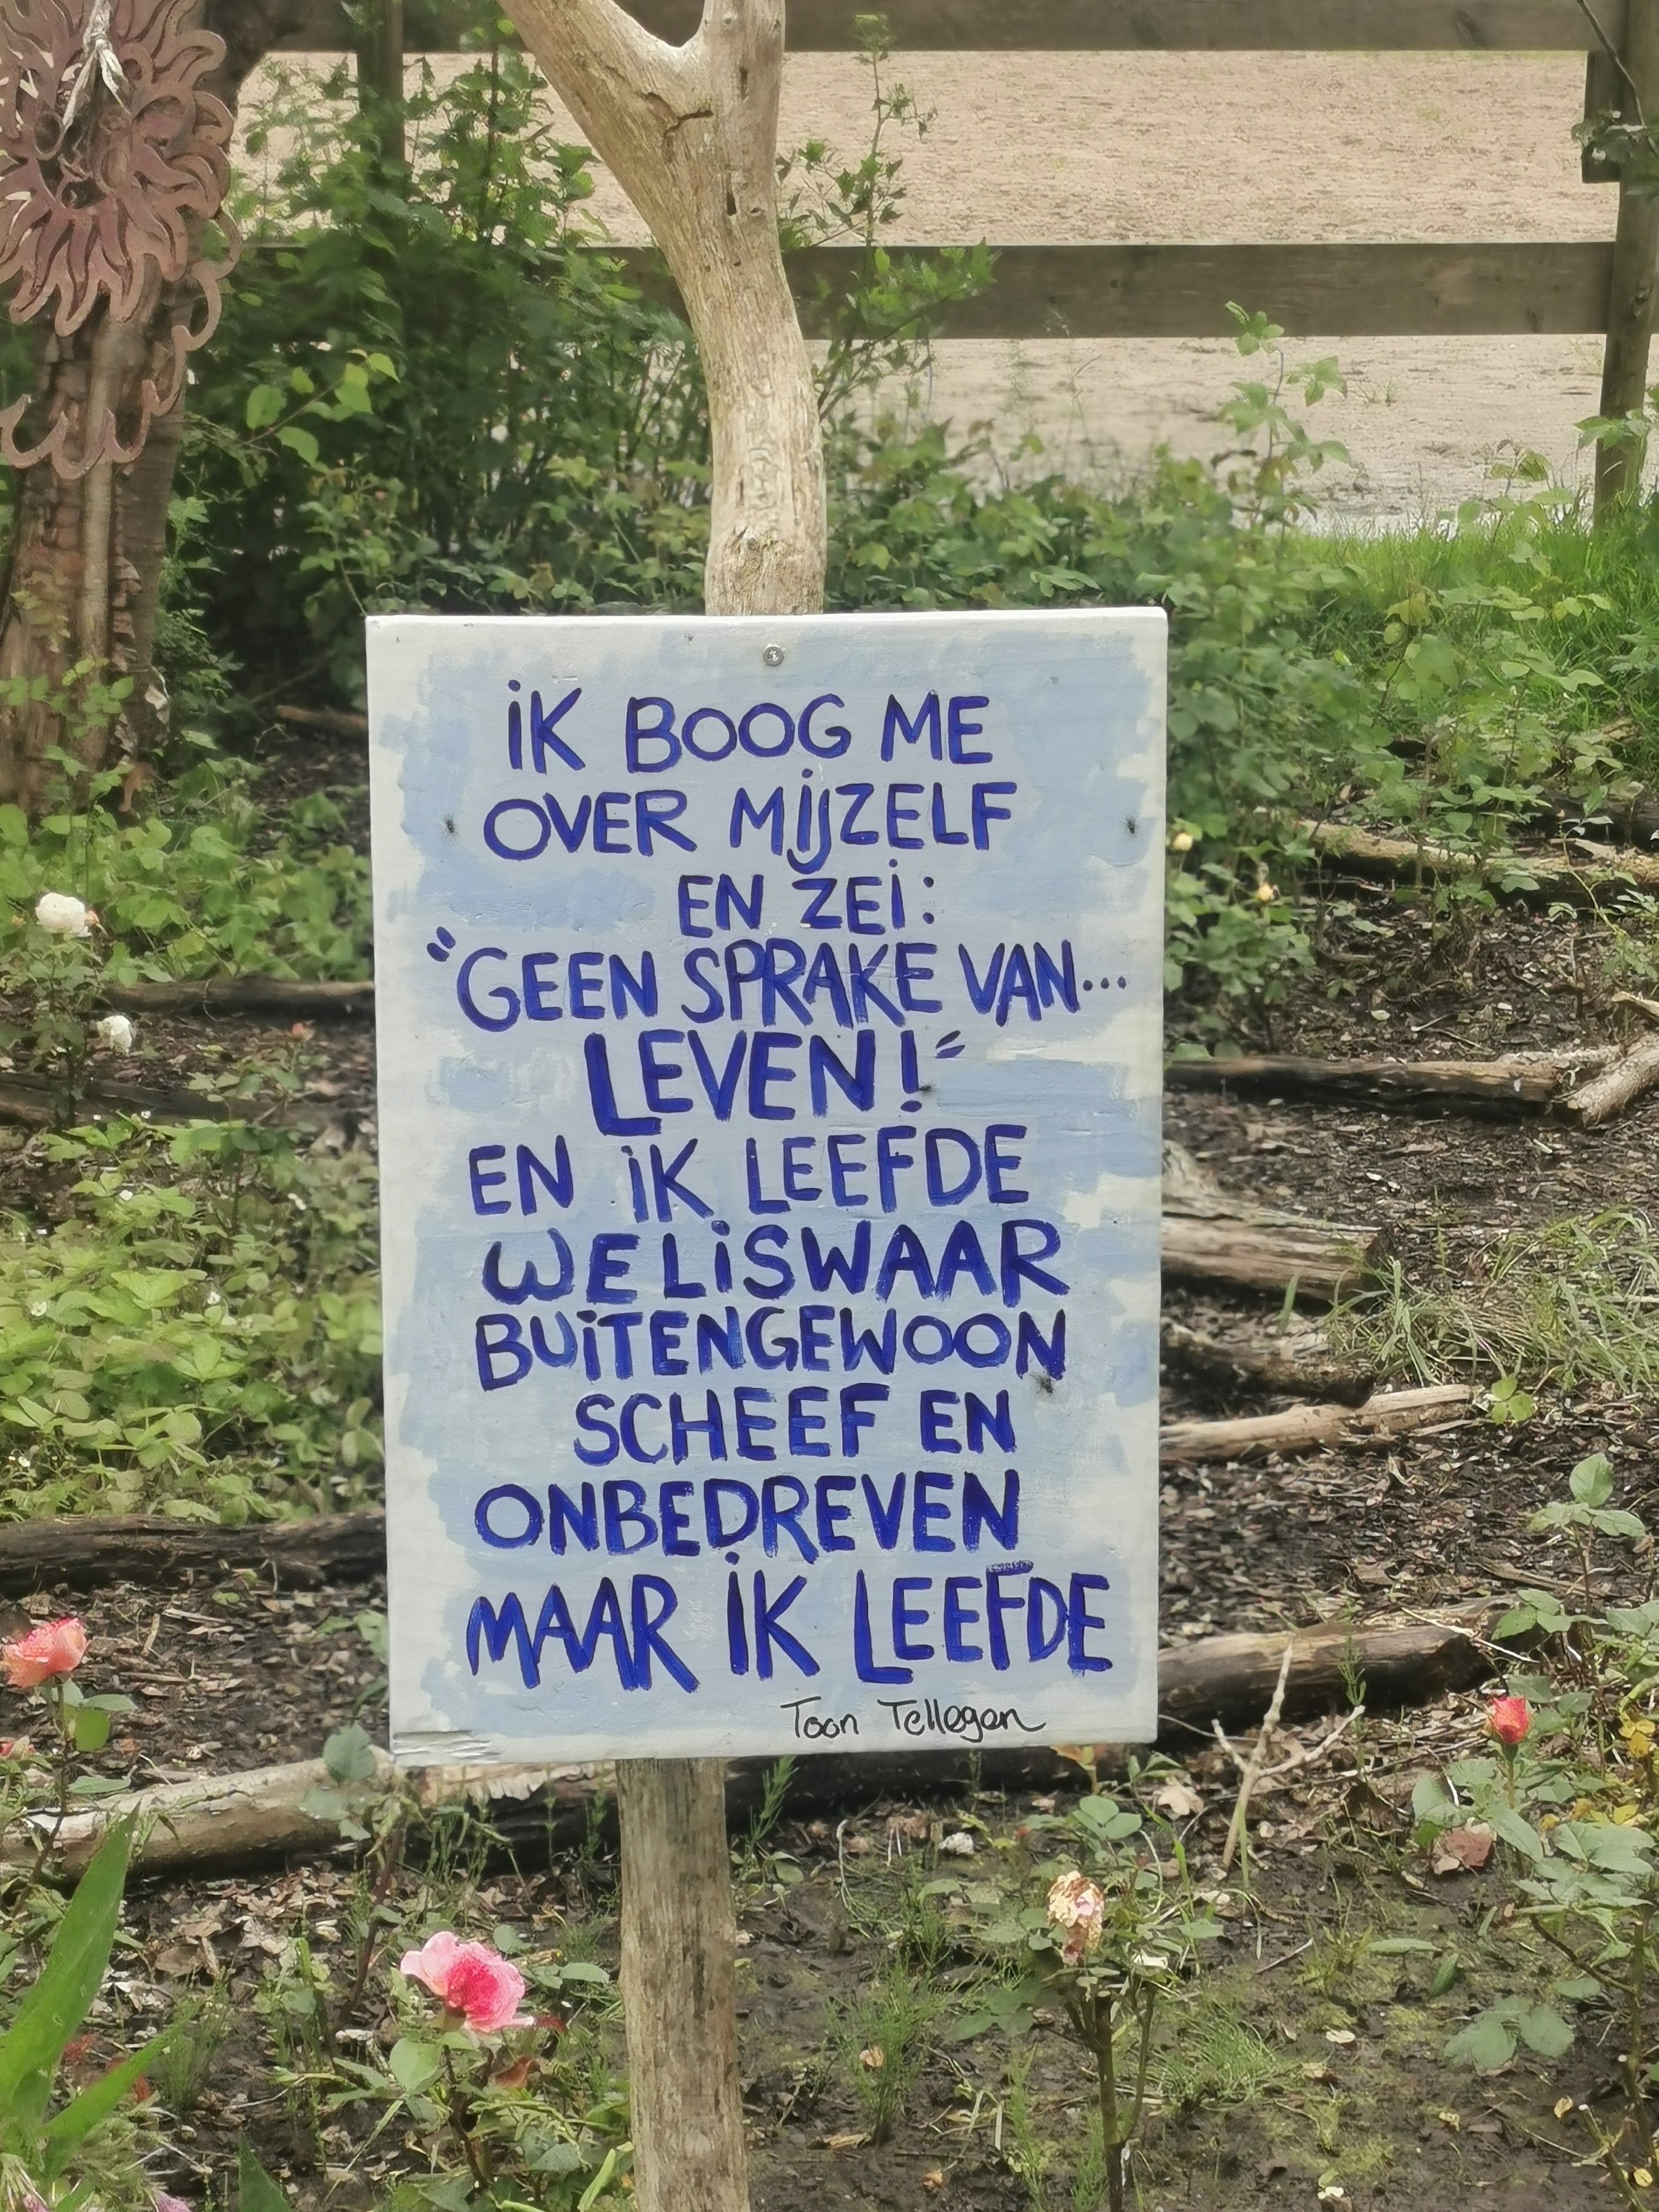 iK BOOG ME
OVER MIJZELF
EN ZEI:
"GEEN SPRAKE VAN...
LEVEN!"
EN iK LEEFDE
WELiSWAAR
BUiTENGEWOON
SCHEEF EN
ONBEDREVEN
MAAR iK LEEFDE
Toon Tellegen